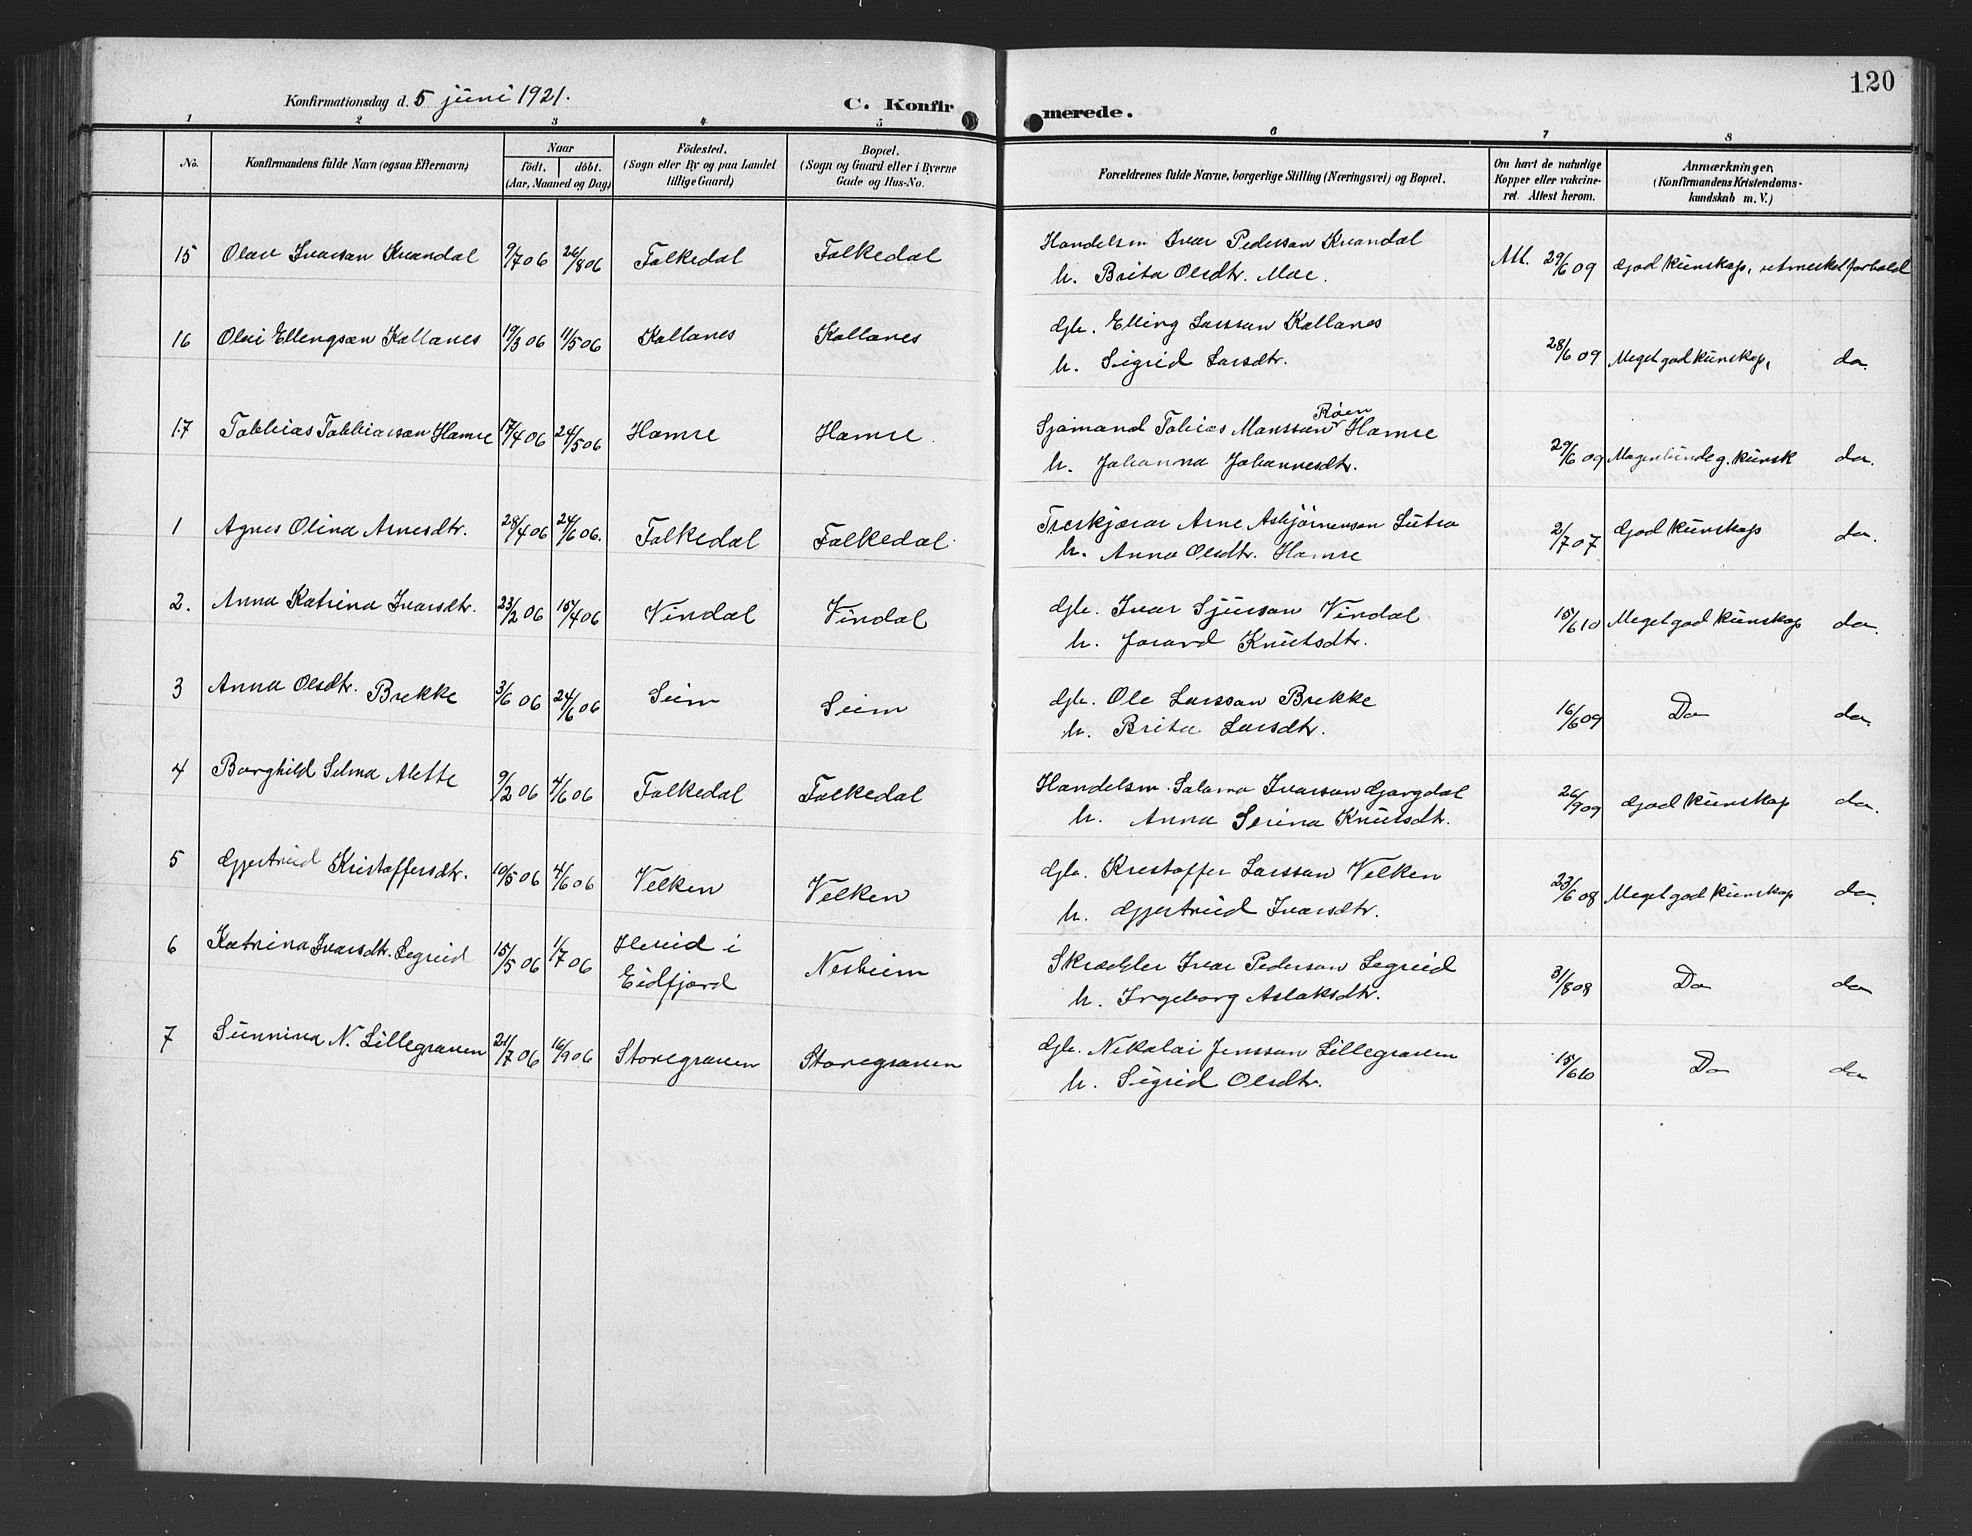 120
Konfirmationsdag d. 5 juni 1921.
C. Konfirmerede.
1 2 3 4 5 6 7 8
No.
Konfirmandens fulde Navn (ogsaa Efternavn)
Naar
födt. döbt.
(Aar, Maaned og Dag)
Födested.
(Sogn eller By og paa Landet
tillige Gaard)
Bopæl.
(Sogn og Gaard eller i Byerne
Gade og Hus-No.
Forældrenes fulde Navne, borgerlige Stilling (Næringsvei) og Bopæl.
Om havt de naturlige
Kopper eller vakcine-
ret. Attest herom.
Anmærkninger.
(Konfirmandens Kristendoms-
kundskab m. V.)
15 Olav Ivarson Kvandal 9/7 06 26/8 06 Folkedal Folkedal Handelsm Ivar Pederson Kvandal Att. 29/6 09 God kunskap, utmerket forhold
h. Brita Olsdtr. Moe.
16 Olai Ellengsøn Kollanes 19/3 06 11/5 06 Kollanes Kollanes Gbr. Elling Larsson Kollanes 28/6 09 Meget god kunskap, do.
h. Sigrid Larsdtr.
17 Tobbias Tobbiasson Hamre 17/4 06 24/5 06 Hamre Hamre. Sjømand Tobias Monsson Røen Hamre 29/6 09 g. kunsk do.
h. Johanna Johannesdtr.
1 Agnes Olina Arnesdtr. 28/4 06 24/6 06. Folkedal Folkedal. Treskjærar Arne Asbjørnenson Lutro 2/7 07 God kunskap do.
h. Anna Olsdtr. Hamre
2. Anna Katrina Ivarsdtr. 23/2 06 15/4 06 Vindal Vindal Gbr. Ivar Sjurson Vindal 15/6 10 Meget god kunskap do.
h. Jorand Knutsdtr.
3 Anna Olsdtr. Brekke 3/6 06 24/6 06 Seim Seim Gbr. Ole Larsson Brekke 16/6 09 Do do.
h. Brita Larsdtr.
4 Borghild Selma Alette 9/2 06 4/6 06 Folkedal Folkedal Handelsm. Salamo Ivarson Gjorgdal 26/9 09 God kunskap do.
h. Anna Serina Knutsdtr.
5 Gjertrud Kristoffersdtr. 10/5 06 4/6 06 Velken Velken Gbr. Krestoffer Larsson Velken 23/6 08 Meget god kunskap do.
h. Gjertrud Ivarsdtr.
6 Katrina Ivarsdtr. Legreid 15/5 06 1/7 06 Hereid i Eidfjord Nesheim Skrædder Ivar Pederson Legreid 31/8 08 Do do
h. Ingeborg Aslaksdtr.
7 Sunniva N. Lillegraven 21/7 06 16/9 06 Storegraven Storegraven Gbr. Nikolai Jensson Lillegraven 15/6 10 Do do
h. Sigrid Olsdtr.